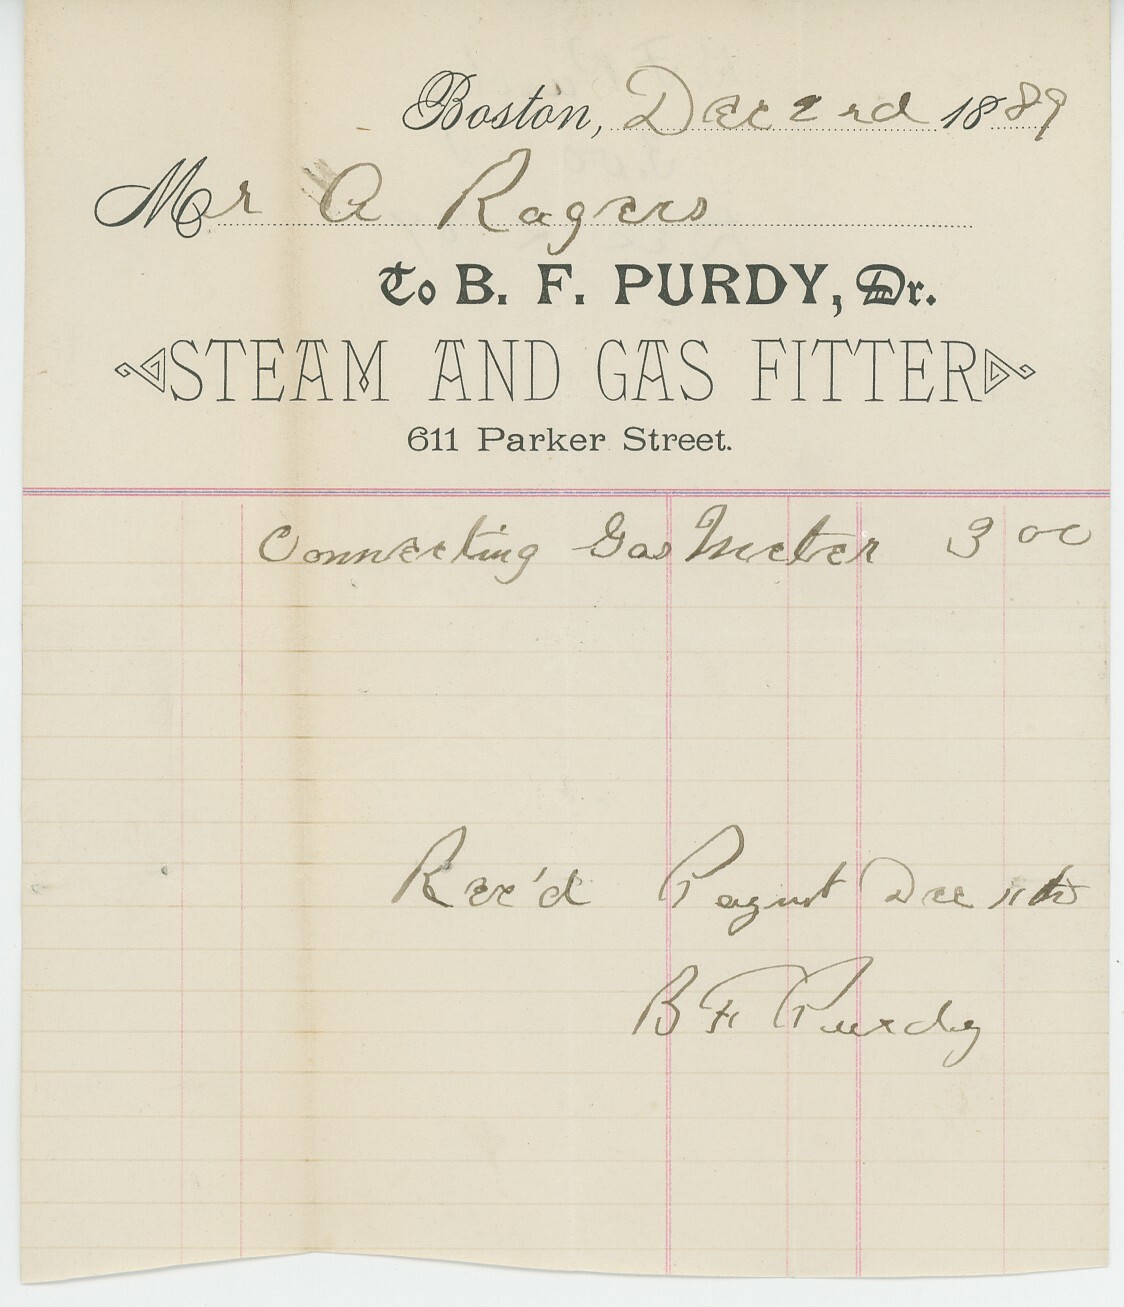 Boston, Dec 2nd 1889
Mr A Rogers
To B. F. PURDY, Dr.
STEAM AND GAS FITTER
611 Parker Street.
Connecting Gas Meter 3 00
Rec'd Paymt Dec 11th
B F Purdy